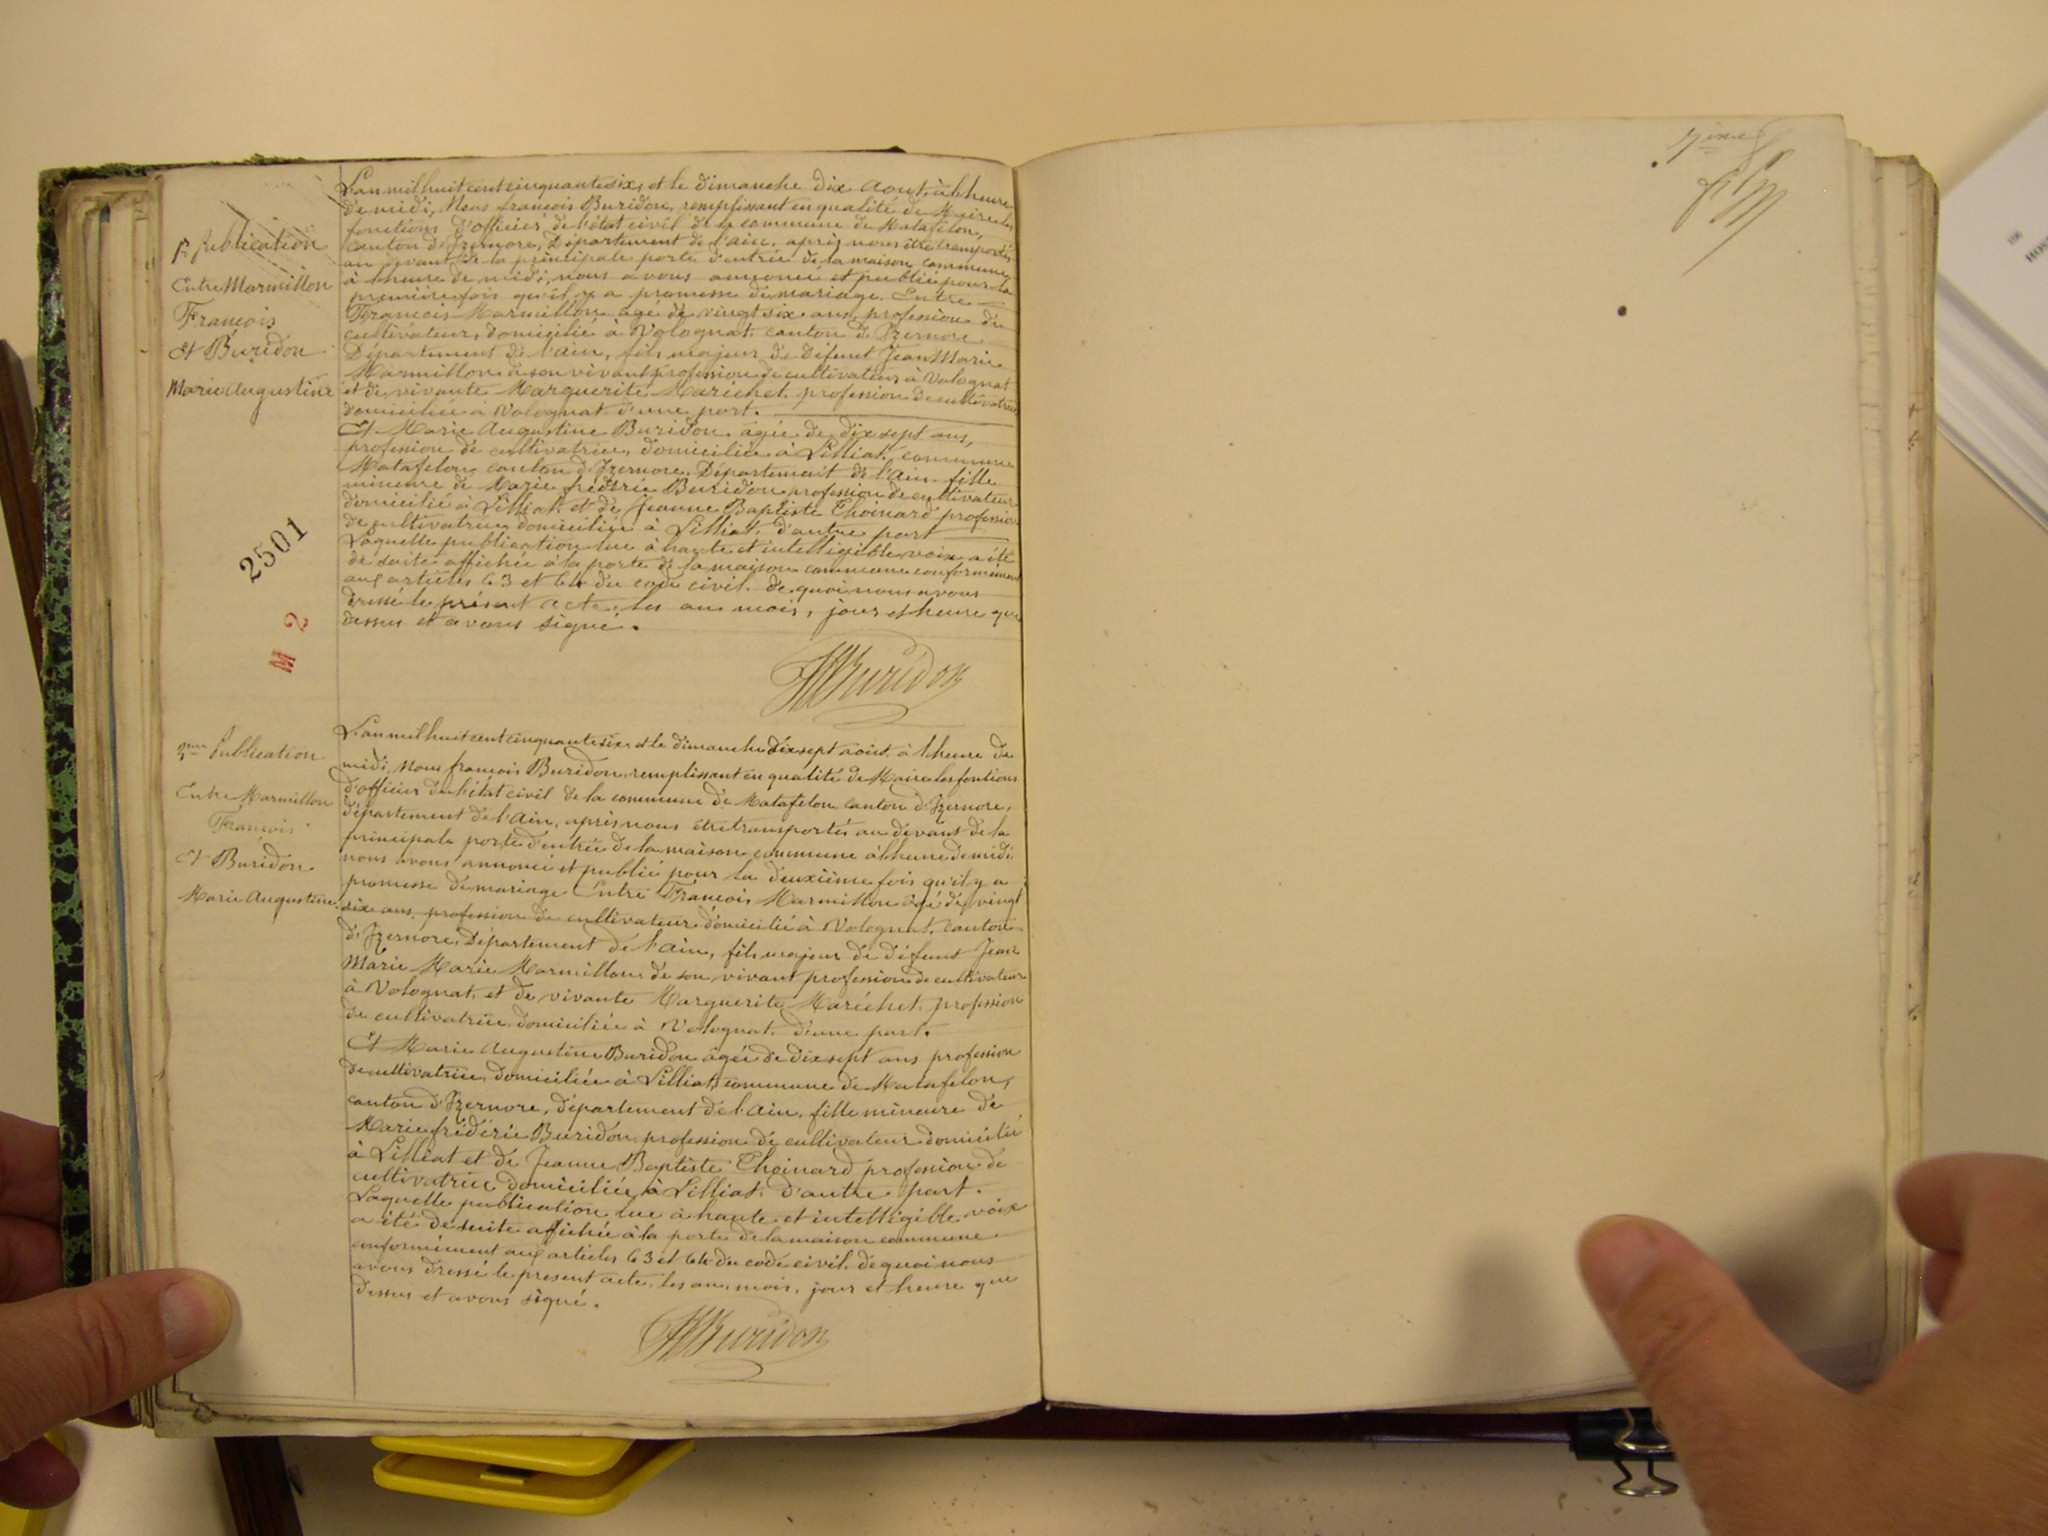 1re Publication
Entre Marmillon
François
Et Buridon
Marie Augustine
L'an mil huit cent cinquante six, et le dimanche dix Aout, à l'heure
de midi, Nous françois Buridon, remplissant en qualité de Maire les
fontions d'officier de l'état civil de la commune de Matafelon,
canton d'Izernore, Département de l'ain, après nous être transportés
au devant de la principale porte d'entrée de la maison commune
à l'heure de midi, nous avons annoncé et publié pour la
premiere fois qu'il y a promesse de mariage. Entre
François Marmillon âgé de vingt six ans, profession de
cultivateur, domicilié à Volognat canton d'Izernore
Département de l'ain, fils majeur de défunt Jean Marie
Marmillon de son vivant profession de cultivateur à Volognat
et de vivante Marguerite Maréchet profession de cultivatrice
domiciliée à Volognat d'une part.
Et Marie Augustine Buridon âgée de dix sept ans,
profession de cultivatrice, domiciliée à Lilliat, commune
Matafelon, canton d'Izernore, Département de l'ain fille
mineure de Marie fréderic Buridon profession de cultivateur
domicilié à Lilliat et de Jeanne Baptiste Thoinard profession
de cultivatrice domiciliée à Lilliat, d'autre part
Laquelle publication lue à haute et intelligible voix a été
de suite affichée à la porte de la maison commune conformément
aux articles 63 et 64 du code civil. de quoi nous avons
dressé le présent acte, les an mois, jour et heure que
dessus et avons signé.
Buridon
2501
M 2
2me Publication
Entre Marmillon
François
Et Buridon
Marie Augustine
L'an mil huit cent cinquante six, et le dimanche dix sept aout, à l'heure de
midi, Nous françois Buridon, remplissant en qualité de Maire les fontions
d'officier de l'état civil de la commune de Matafelon canton d'Izernore,
département de l'Ain, après nous être transportés au devant de la
principale porte d'entrée de la maison commune à l'heure de midi
nous avons annoncé et publié pour la deuxième fois qu'il y a
promesse de mariage Entre François Marmillon âgé de vingt
six ans, profession de cultivateur domicilié à Volognat, canton
d'Izernore, Département de l'ain, fils majeur de défunt Jean
Marie Marie Marmillon de son vivant profession de cultivateur
à Volognat, et de vivante Marguerite Maréchet, profession
de cultivatrice domiciliée à Volognat d'une part.
Et Marie Augustine Buridon âgée de dix sept ans profession
de cultivatrice, domiciliée à Lilliat, commune de Matafelon,
canton d'Izernore, département de l'ain, fille mineure de
Marie frédéric Buridon profession de cultivateur domicilié
à Lilliat et de Jeanne Baptiste Thoinard profession de
cultivatrice domiciliée à Lilliat, d'autre part.
Laquelle publication lue à haute et intelligible voix
a été de suite affichée à la porte de la maison commune
conformément aux articles 63 et 64 du code civil. de quoi nous
avons dressé le présent acte, les an, mois, jour et heure que
dessus et avons signé.
Buridon